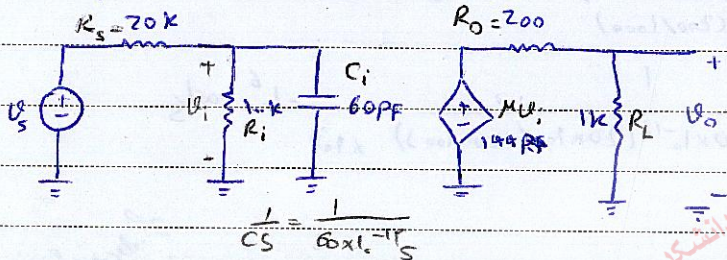 Rs=20k
Ro=200
+
Vi
-
Vs
1..k
Ri
Ci
60PF
μVi
144
1k
RL
+
Vo
-
1/CS = 1/(60×1.⁻¹²S)